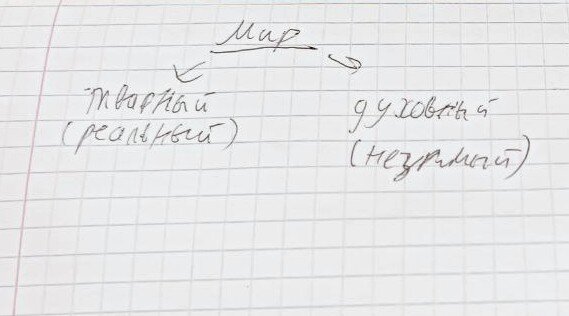 Мир
тварный духовный
(реальный) (незримый)